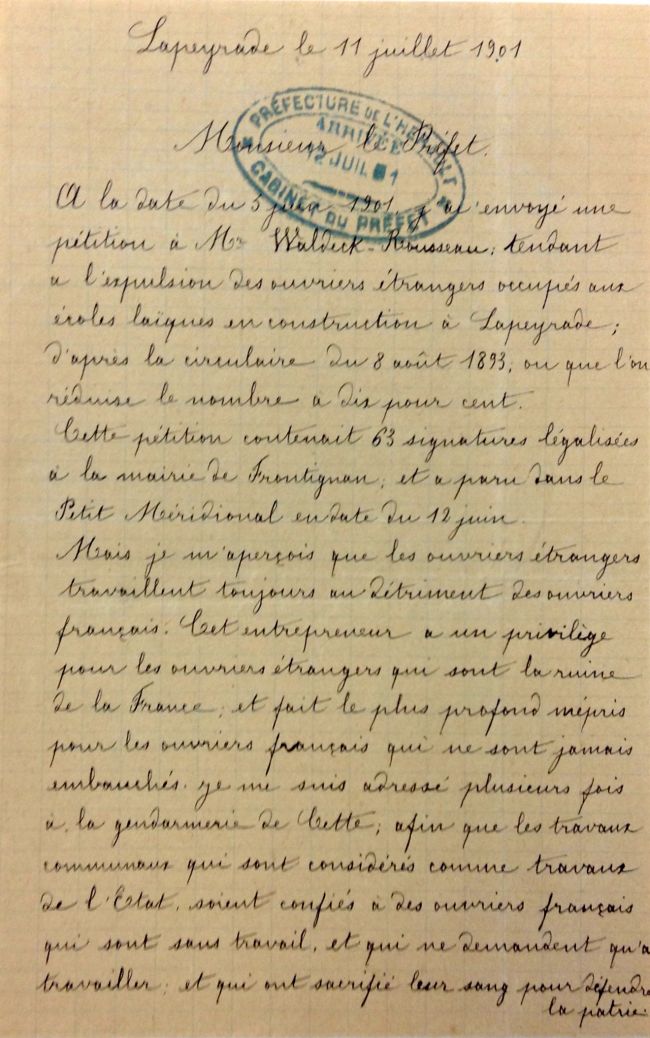 Lapeyrade le 11 juillet 1901
PRÉFECTURE DE L'HÉRAULT
ARRIVÉE
12 JUIL 01
CABINET DU PRÉFET
Monsieur le Préfet.
A la date du 5 juin 1901 j'ai envoyé une
pétition à Mr Waldeck-Rousseau; tendant
a l'expulsion des ouvriers étrangers occupés aux
écoles laïques en construction à Lapeyrade;
d'après la circulaire du 8 août 1893, ou que l'on
réduise le nombre a dix pour cent.
Cette pétition contenait 63 signatures légalisées
à la mairie de Frontignan, et a paru dans le
Petit Méridional en date du 12 juin.
Mais je m'aperçois que les ouvriers étrangers
travaillent toujours au détriment des ouvriers
français. Cet entrepreneur a un privilège
pour les ouvriers étrangers qui sont la ruine
de la France; et fait le plus profond mépris
pour les ouvriers français qui ne sont jamais
embauchés. je me suis adressé plusieurs fois
à la gendarmerie de Cette; afin que les travaux
communaux qui sont considérés comme travaux
de l'Etat, soient confiés à des ouvriers français
qui sont sans travail, et qui ne demandent qu'a
travailler; et qui ont sacrifié leur sang pour défendre
la patrie.